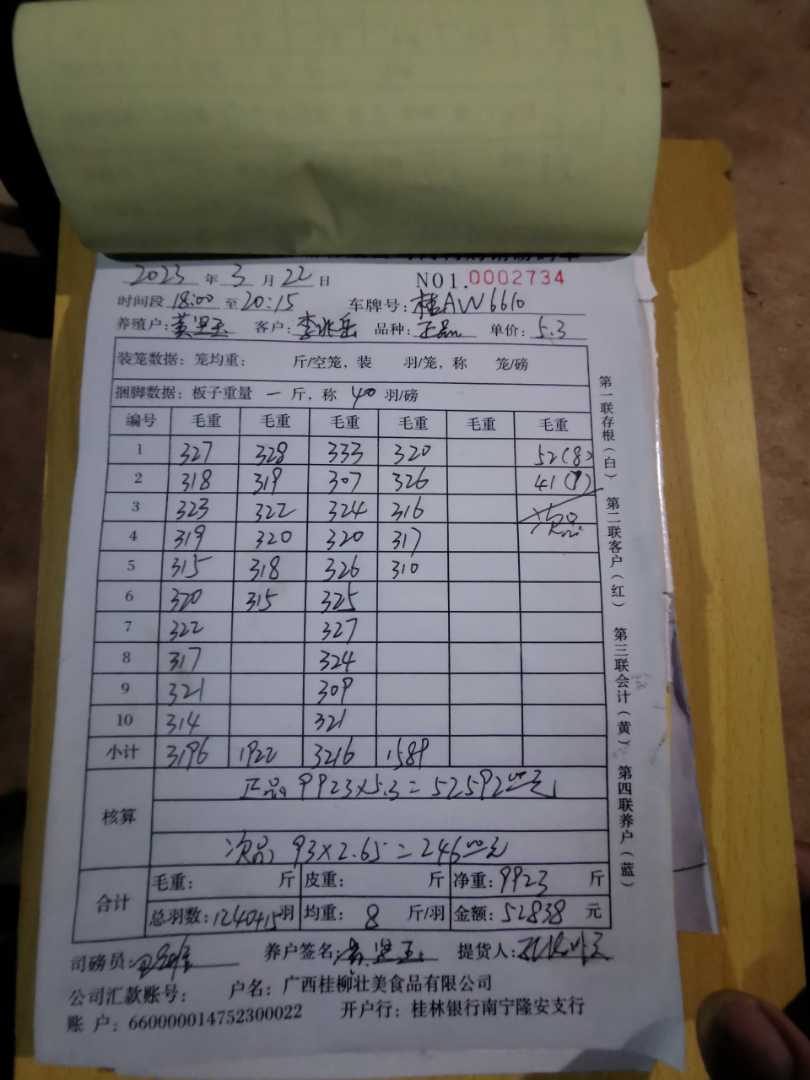 2023 年 3 月 22 日 NO1.0002734
时间段 18:00 至 20:15 车牌号: 桂AW6610
养殖户: 黄坚玉 客户: 李兆岳 品种: 正品 单价: 5.3
装笼数据: 笼均重: 斤/空笼, 装 羽/笼, 称 笼/磅
捆脚数据: 板子重量 一 斤, 称 40 羽/磅
编号 毛重 毛重 毛重 毛重 毛重 毛重
1 327 328 333 320 52(8)
2 318 319 307 326 41(7)
3 323 322 324 316 次品
4 319 320 320 317
5 315 318 326 310
6 320 315 325
7 322 327
8 317 324
9 321 309
10 314 321
小计 3196 1922 3216 1589
核算
正品, 9923×5.3=52592.00元
次品, 93×2.65=246.00元
合计
毛重: 斤 皮重: 斤 净重: 9923 斤
总羽数: 1240+15羽 均重: 8 斤/羽 金额: 52838 元
司磅员: 养户签名: 黄坚玉 提货人:
公司汇款账号: 户名: 广西桂柳壮美食品有限公司
账 户: 660000014752300022 开户行: 桂林银行南宁隆安支行
第一联存根(白) 第二联客户(红) 第三联会计(黄) 第四联养户(蓝)